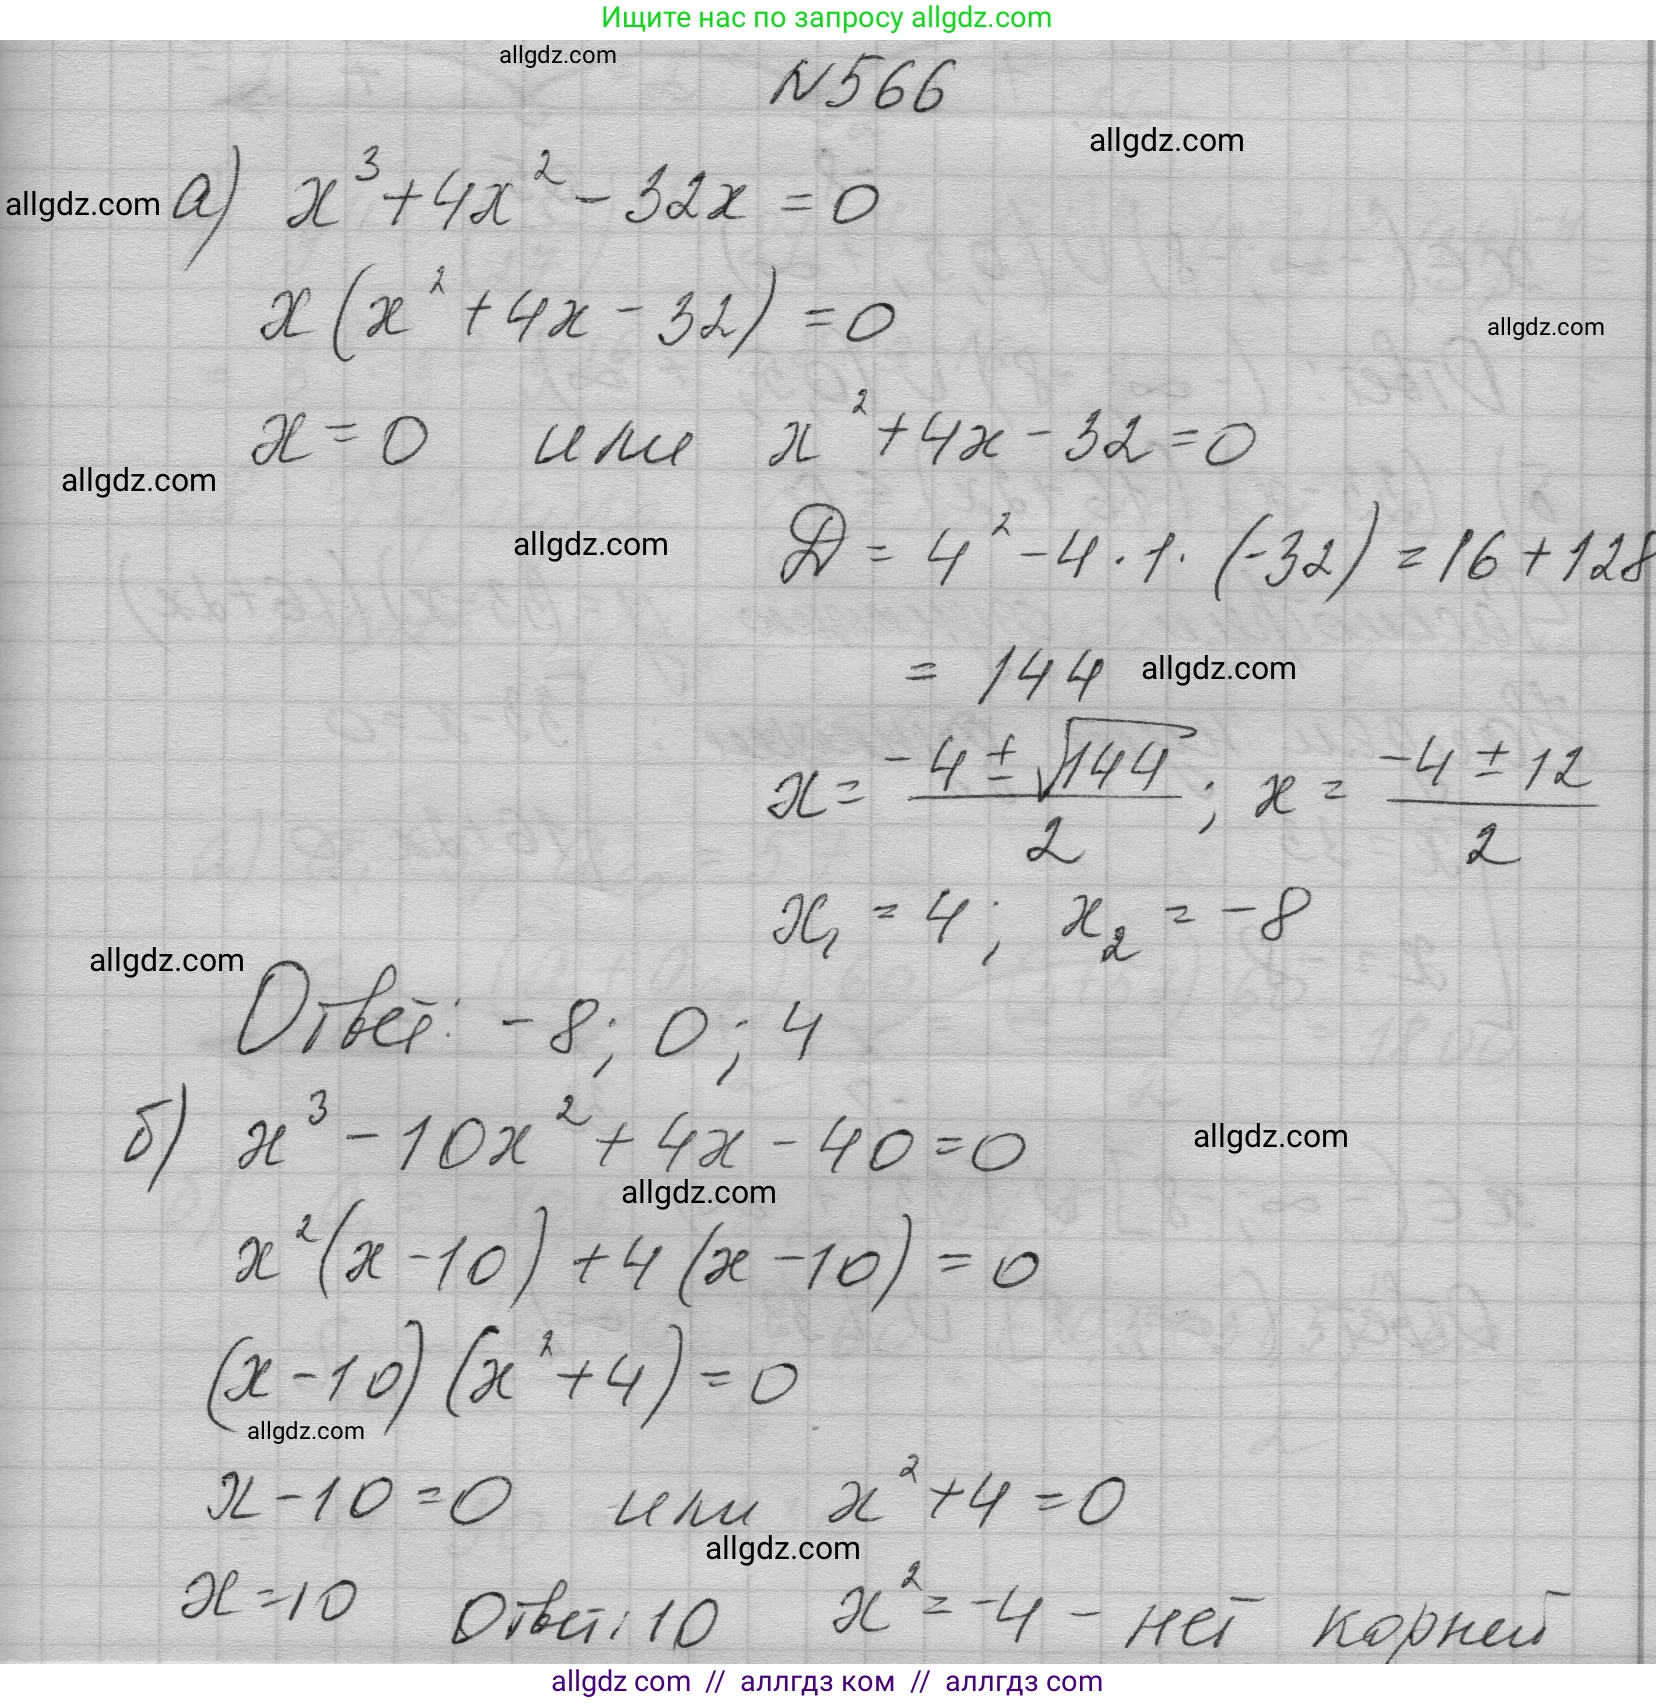 Ищите нас по запросу allgdz.com
allgdz.com
N566
allgdz.com
allgdz.com
а) x³ + 4x² - 32x = 0
x(x² + 4x - 32) = 0
allgdz.com
x = 0 или x² + 4x - 32 = 0
allgdz.com
allgdz.com
D = 4² - 4 · 1 · (-32) = 16 + 128
= 144
allgdz.com
x = (-4 ± √144)/2 ; x = (-4 ± 12)/2
x₁ = 4; x₂ = -8
allgdz.com
Ответ: -8; 0; 4
б) x³ - 10x² + 4x - 40 = 0
allgdz.com
allgdz.com
x²(x - 10) + 4(x - 10) = 0
(x - 10)(x² + 4) = 0
allgdz.com
x - 10 = 0 или x² + 4 = 0
allgdz.com
x = 10 Ответ: 10 x² = -4 - нет корней
allgdz.com // аллгдз ком // аллгдз com